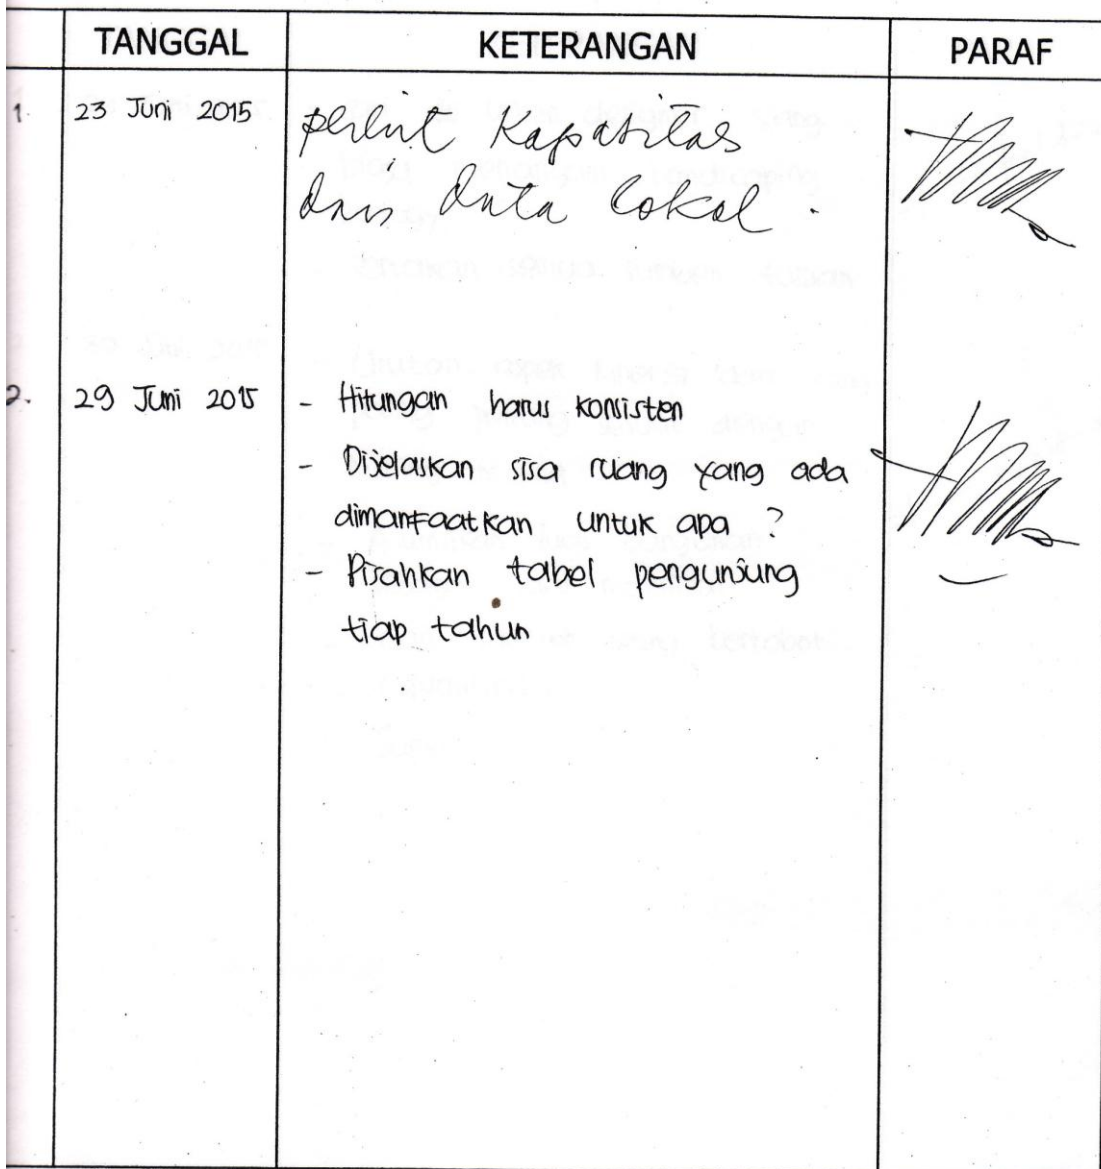 TANGGAL KETERANGAN PARAF
1. 23 Juni 2015 Kapasitas
data lokal.
2. 29 Juni 2015 - Hitungan harus konsisten
- Dijelaskan sisa ruang yang ada
dimanfaatkan untuk apa ?
- Pisahkan tabel pengunjung
tiap tahun